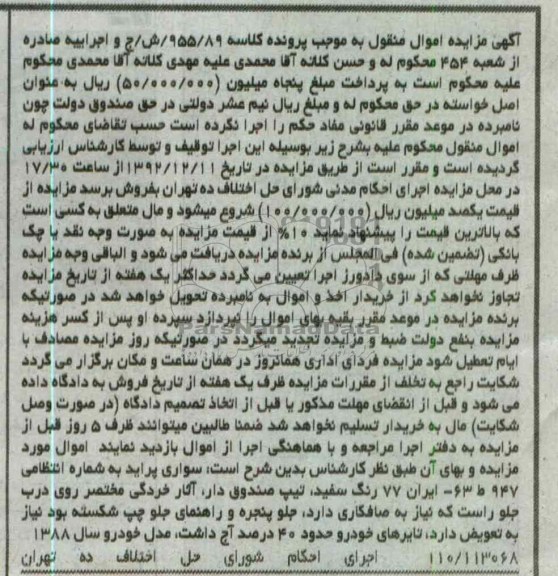 آگهی مزایده اموال منقول به موجب پرونده کلاسه ۹۵۵/۸۹/ش/ج و اجراییه صادره
از شعبه ۴۵۴ محکوم له و حسن کلانه آقا محمدی علیه مهدی کلانه آقا محمدی محکوم
علیه محکوم است به پرداخت مبلغ پنجاه میلیون (۵۰/۰۰۰/۰۰۰) ریال به عنوان
اصل خواسته در حق محکوم له و مبلغ ریال نیم عشر دولتی در حق صندوق دولت چون
نامبرده در موعد مقرر قانونی مفاد حکم را اجرا نکرده است حسب تقاضای محکوم له
اموال منقول محکوم علیه بشرح زیر بوسیله این اجرا توقیف و توسط کارشناس ارزیابی
گردیده است و مقرر است از طریق مزایده در تاریخ ۱۳۹۲/۱۲/۱۱از ساعت ۱۷/۳۰
در محل مزایده اجرای احکام مدنی شورای حل اختلاف ده تهران بفروش برسد مزایده از
قیمت یکصد میلیون ریال (۱۰۰/۰۰۰/۰۰۰) شروع میشود و مال متعلق به کسی است
که بالاترین قیمت را پیشنهاد نماید ۱۰% از قیمت مزایده به صورت وجه نقد یا چک
بانکی (تضمین شده) فی المجلس از برنده مزایده دریافت می شود و الباقی وجه مزایده
ظرف مهلتی که از سوی دادورز اجرا تعیین می گردد حداکثر یک هفته از تاریخ مزایده
تجاوز نخواهد کرد از خریدار اخذ و اموال به نامبرده تحویل خواهد شد در صورتیکه
برنده مزایده در موعد مقرر بقیه بهای اموال را نپردازد سپرده او پس از کسر هزینه
مزایده بنفع دولت ضبط و مزایده تجدید میگردد در صورتیکه روز مزایده مصادف با
ایام تعطیل شود مزایده فردای اداری همانروز در همان ساعت و مکان برگزار می گردد
شکایت راجع به تخلف از مقررات مزایده ظرف یک هفته از تاریخ فروش به دادگاه داده
می شود و قبل از انقضای مهلت مذکور یا قبل از اتخاذ تصمیم دادگاه (در صورت وصل
شکایت) مال به خریدار تسلیم نخواهد شد ضمنا طالبین میتوانند ظرف ۵ روز قبل از
مزایده به دفتر اجرا مراجعه و با هماهنگی اجرا از اموال بازدید نمایند اموال مورد
مزایده و بهای آن طبق نظر کارشناس بدین شرح است: سواری پراید به شماره انتظامی
۹۴۷ ط ۶۳- ایران ۷۷ رنگ سفید، تیپ صندوق دار، آثار خردگی مختصر روی درب
جلو راست که نیاز به صافکاری دارد، جلو پنجره و راهنمای جلو چپ شکسته بود نیاز
به تعویض دارد، تایرهای خودرو حدود ۴۰ درصد آج داشت، مدل خودرو سال ۱۳۸۸
۱۱۰/۱۱۳۰۶۸ اجرای احکام شورای حل اختلاف ده تهران